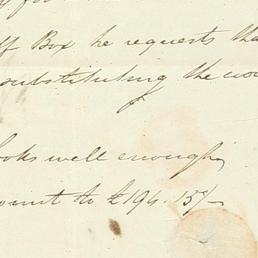 ff Box he requests tha
ubstituting the wo
for
ooks well enough
ount to £194. 15/-